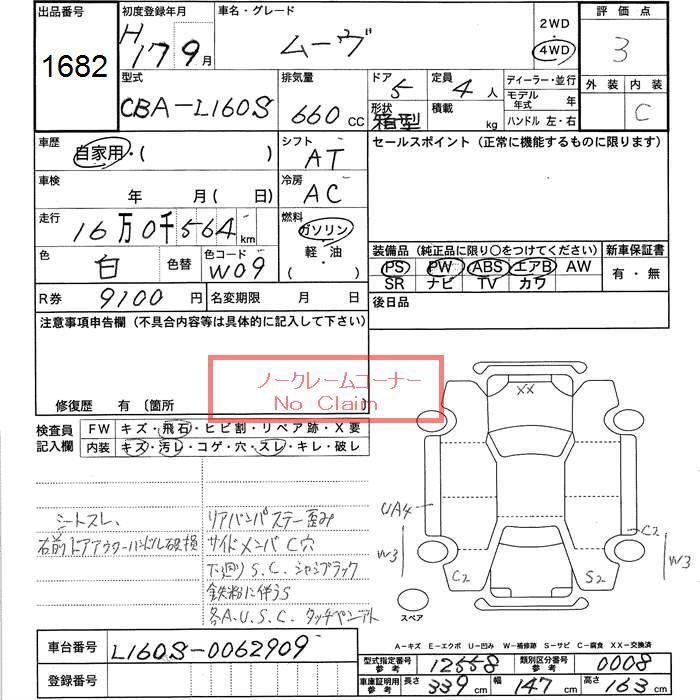 出品番号 初度登録年月 車名・グレード 2WD 評価点
1682 H17 9月 ムーヴ 4WD 3
型式 排気量 ドア 定員 ディーラー・並行 外装 内装
CBA-L160S 660cc 5 4人 モデル年式 年 C
形状 箱型 積載 kg ハンドル 左・右
車歴 自家用・( ) シフト AT セールスポイント(正常に機能するものに限ります)
車検 年 月(日) 冷房 AC
走行 16万0千564km 燃料 ガソリン
軽・油
( )
色 白 色替 色コード W09
装備品(純正品に限り○をつけてください) 新車保証書
PS PW ABS エアB AW 有・無
SR ナビ TV カワ
R券 9100円 名変期限 月 日 後日品
注意事項申告欄(不具合内容等は具体的に記入して下さい)
ノークレームコーナー
No Claim
修復歴 有 〔箇所 〕
検査員 FW キズ・飛石・ヒビ割・リペア跡・X要
記入欄 内装 キズ・汚レ・コゲ・穴・スレ・キレ・破レ
シートスレ、
右前ドアアウターハンドル破損
リアバンパステー歪み
サイドメンバC穴
下廻りS.C.シャシブラック
鉄粉に伴うS
各A.U.S.C.タッチペンアト
XX
UA4
C2
W3
W3
C2 S2
スペア
A-キズ E-エクボ U-凹み W-補修跡 S-サビ C-腐食 XX-交換済
車台番号 L160S-0062909
型式指定番号 参考 12558 類別区分番号 参考 0008
登録番号
車庫証明用 参考 長さ 339cm 幅 147cm 高さ 163cm